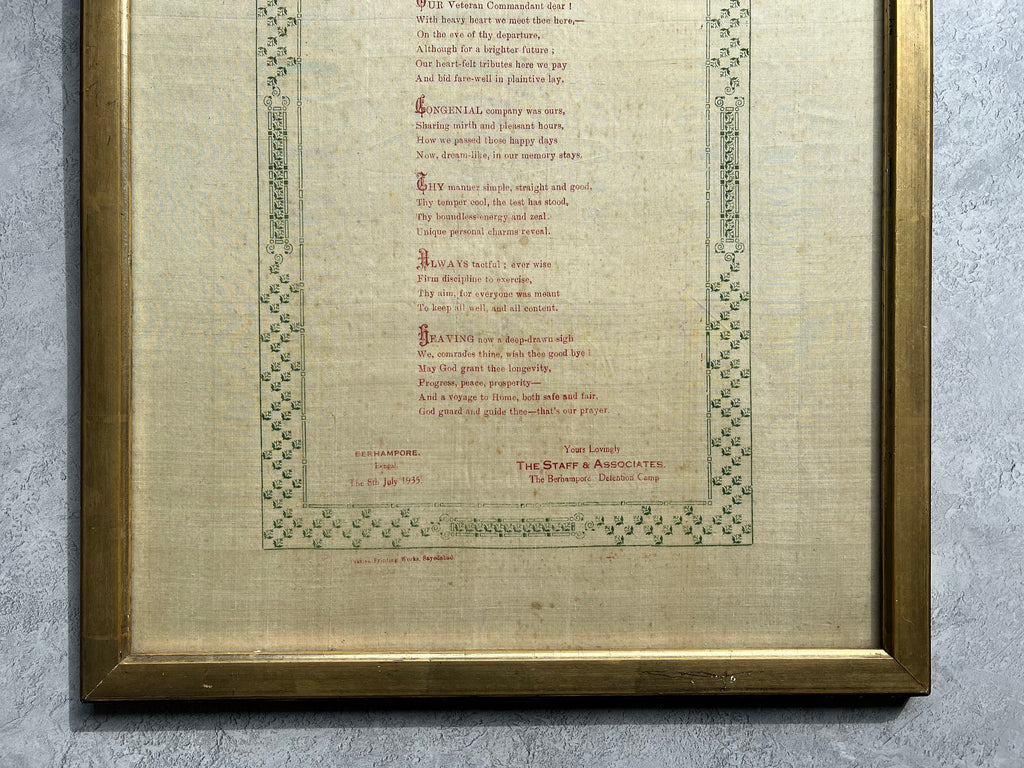 OUR Veteran Commandant dear !
With heavy heart we meet thee here,—
On the eve of thy departure,
Although for a brighter future ;
Our heart-felt tributes here we pay
And bid fare-well in plaintive lay,
CONGENIAL company was ours,
Sharing mirth and pleasant hours,
How we passed those happy days
Now, dream-like, in our memory stays.
THY manner simple, straight and good,
Thy temper cool, the test has stood,
Thy boundless energy and zeal
Unique personal charms reveal.
ALWAYS tactful ; ever wise
Firm discipline to exercise,
Thy aim, for everyone was meant
To keep all well, and all content.
HEAVING now a deep-drawn sigh
We, comrades thine, wish thee good bye !
May God grant thee longevity,
Progress, peace, prosperity—
And a voyage to Home, both safe and fair,
God guard and guide thee—that's our prayer.
BERHAMPORE.
Bengal.
The 8th July 1935.
Yours Lovingly
THE STAFF & ASSOCIATES.
The Berhampore Detention Camp
Printing Works, Sayedabad.